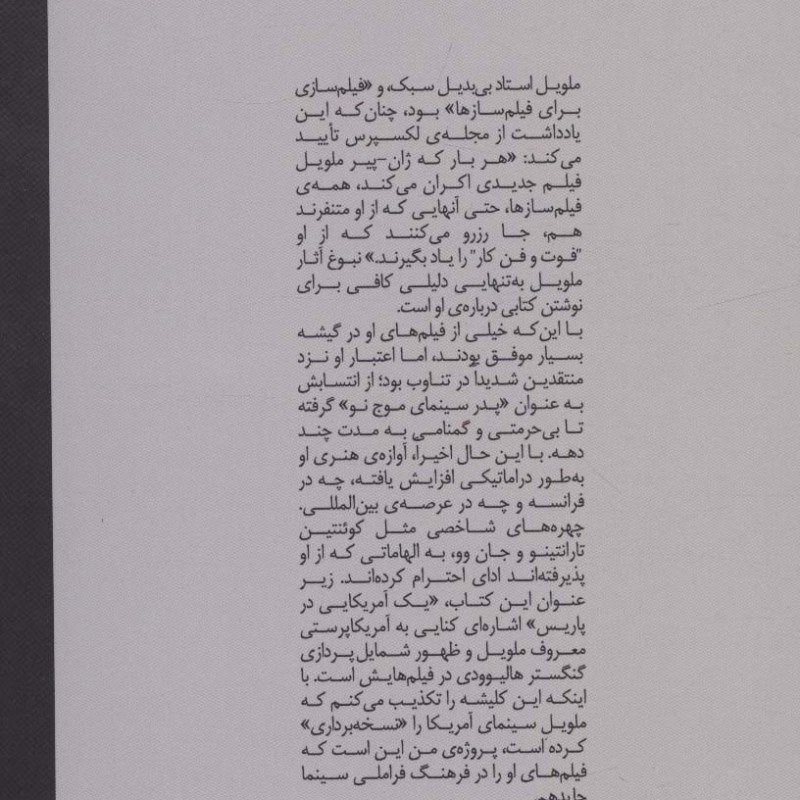 ملویل استاد بی‌بدیل سبک، و «فیلم‌سازی
برای فیلم‌سازها» بود، چنان‌که این
یادداشت از مجله‌ی لکسپرس تأیید
می‌کند: «هر بار که ژان-پیر ملویل
فیلم جدیدی اکران می‌کند، همه‌ی
فیلم‌سازها، حتی آنهایی که از او متنفرند
هم، جا رزرو می‌کنند که از او
"فوت و فن کار" را یاد بگیرند.» نبوغ آثار
ملویل به‌تنهایی دلیلی کافی برای
نوشتن کتابی درباره‌ی او است.
با این‌که خیلی از فیلم‌های او در گیشه
بسیار موفق بودند، اما اعتبار او نزد
منتقدین شدیداً در تناوب بود؛ از انتسابش
به عنوان «پدر سینمای موج نو» گرفته
تا بی‌حرمتی و گمنامی به مدت چند
دهه. با این حال اخیراً، آوازه‌ی هنری او
به‌طور دراماتیکی افزایش یافته، چه در
فرانسه و چه در عرصه‌ی بین‌المللی.
چهره‌های شاخصی مثل کوئنتین
تارانتینو و جان وو، به الهاماتی که از او
پذیرفته‌اند ادای احترام کرده‌اند. زیر
عنوان این کتاب، «یک آمریکایی در
پاریس» اشاره‌ای کنایی به آمریکاپرستی
معروف ملویل و ظهور شمایل‌پردازی
گنگستر هالیوودی در فیلم‌هایش است. با
اینکه این کلیشه را تکذیب می‌کنم که
ملویل سینمای آمریکا را «نسخه‌برداری»
کرده است، پروژه‌ی من این است که
فیلم‌های او را در فرهنگ فراملی سینما
جا بدهم.